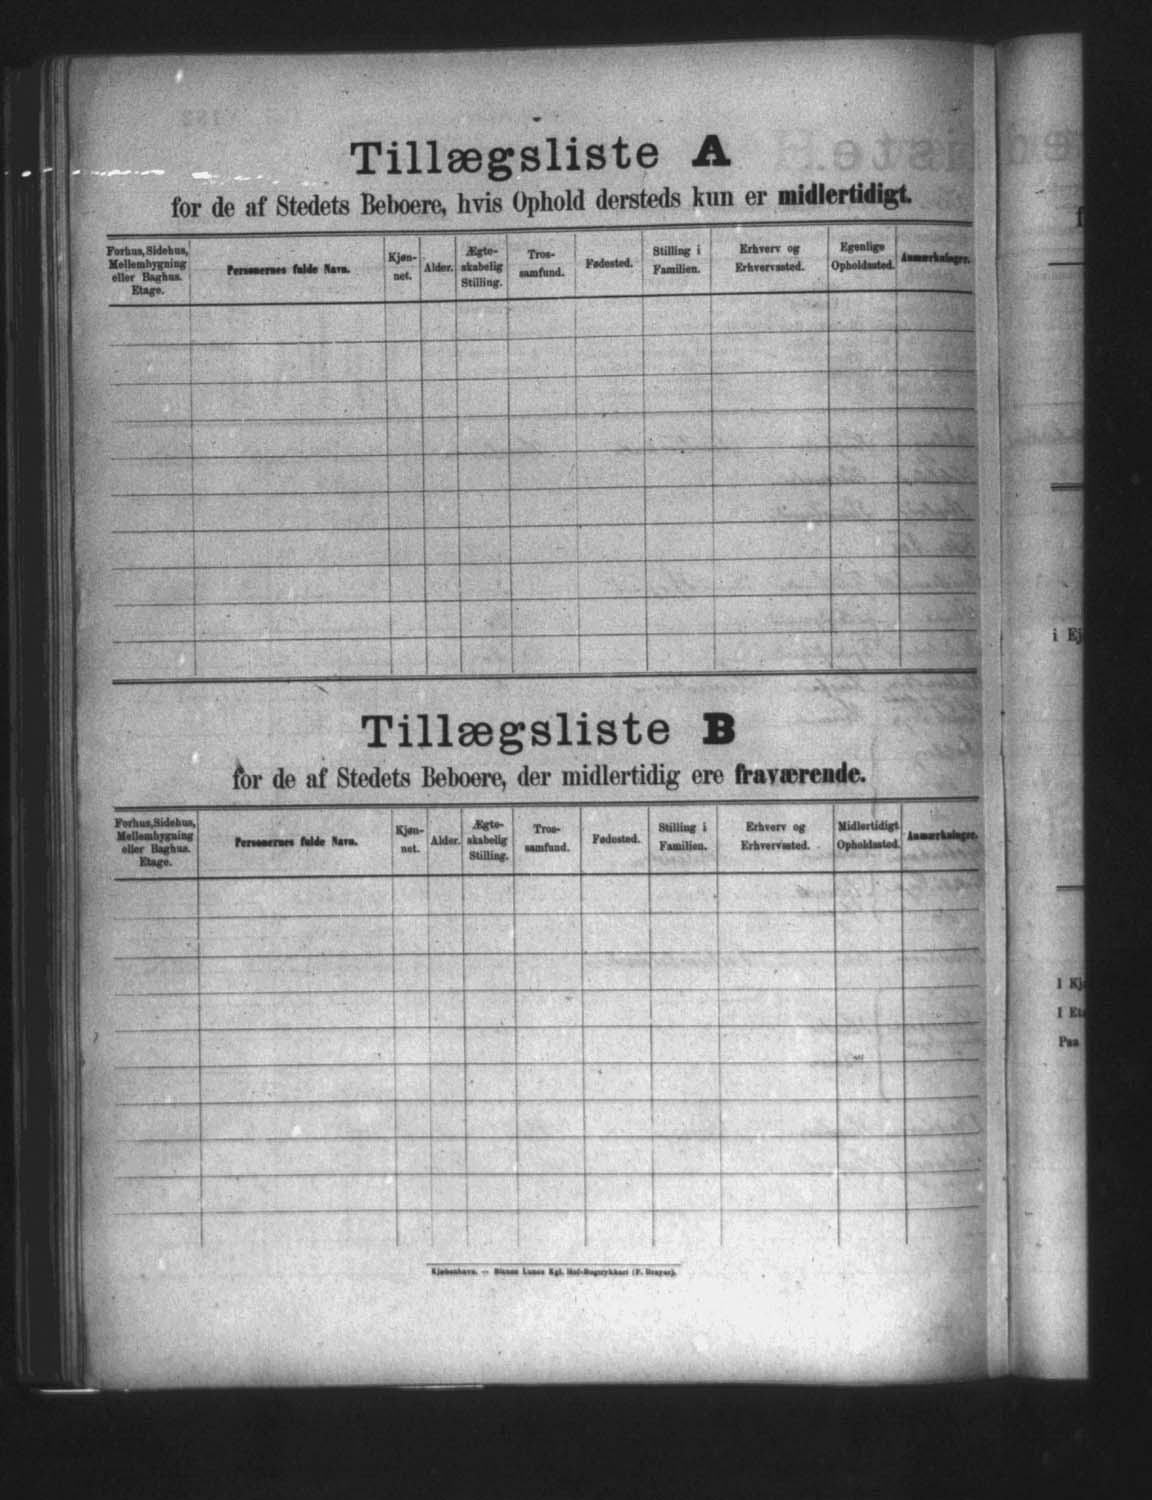 Tillægsliste A
for de af Stedets Beboere, hvis Ophold dersteds kun er midlertidigt.
Forhus, Sidehus, Mellembygning eller Baghus. Etage. Personernes fulde Navn. Kjøn-net. Alder. Ægte-skabelig Stilling. Tros-samfund. Fødested. Stilling i Familien. Erhverv og Erhvervssted. Egenlige Opholdssted. Anmærkninger.
Tillægsliste B
for de af Stedets Beboere, der midlertidig ere fraværende.
Forhus, Sidehus, Mellembygning eller Baghus. Etage. Personernes fulde Navn. Kjøn-net. Alder. Ægte-skabelig Stilling. Tros-samfund. Fødested. Stilling i Familien. Erhverv og Erhvervssted. Midlertidigt Opholdssted. Anmærkninger.
Kjøbenhavn. — Bianco Lunos Kgl. Hof-Bogtrykkeri (F. Dreyer).
i Ej
I Kj
I Et
Paa